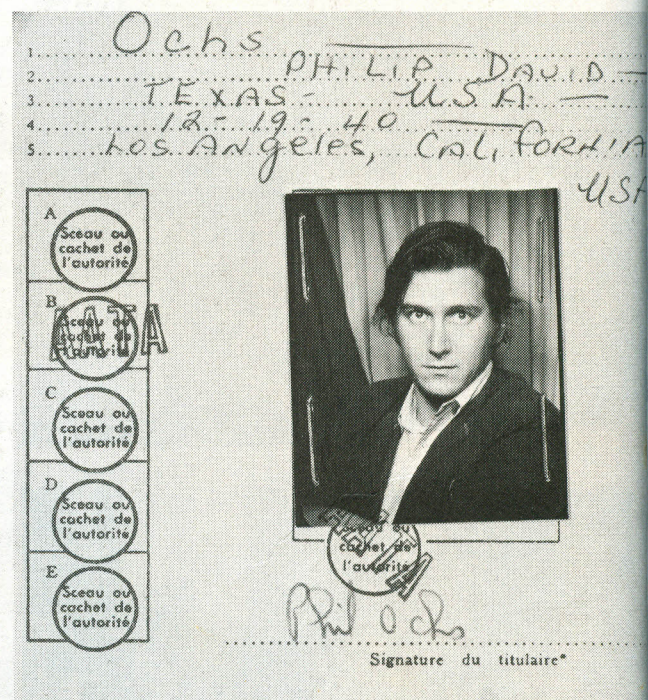 1 Ochs
2 PHILIP DAVID
3 TEXAS - USA
4 12-19-40
5 Los Angeles, CALIFORNIA
USA
A
Sceau ou
cachet de
l'autorité
B
Sceau ou
cachet de
l'autorité
AATA
C
Sceau ou
cachet de
l'autorité
D
Sceau ou
cachet de
l'autorité
E
Sceau ou
cachet de
l'autorité
Sceau ou
cachet de
l'autorité
Phil Ochs
Signature du titulaire*